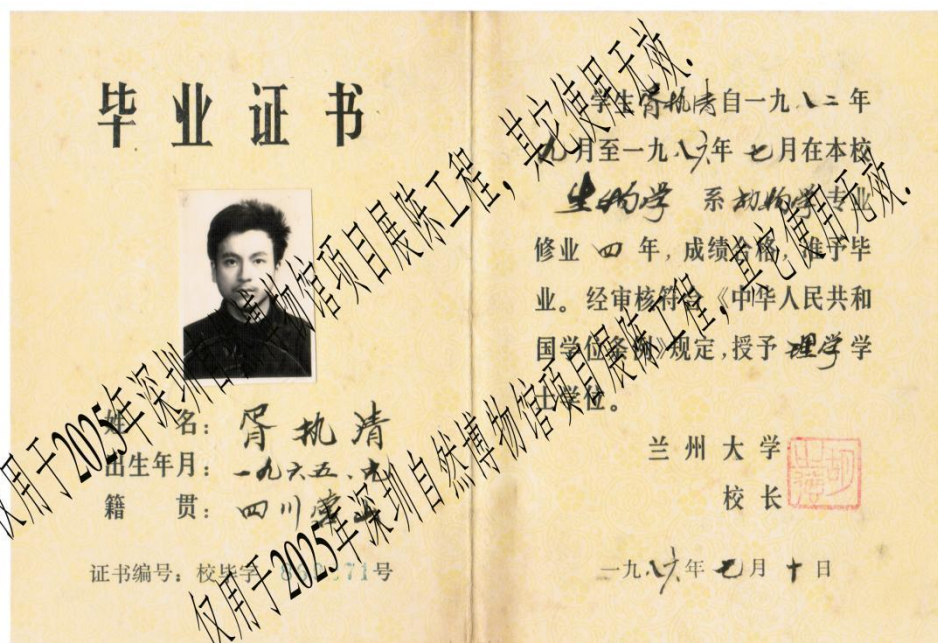 毕业证书
姓 名：胥执清
出生年月：一九六五、九
籍 贯：四川
证书编号：校毕字 71号
学生胥执清自一九八二年
九月至一九八六年七月在本校
生物学 系动物学专业
修业四年，成绩合格，准予毕
业。经审核符合《中华人民共和
国学位条例》规定，授予理学学
士学位。
兰州大学
校长
一九八六年七月十日
仅用于2025年深圳自然博物馆项目展陈工程，其它使用无效.
仅用于2025年深圳自然博物馆项目展陈工程，其它使用无效.